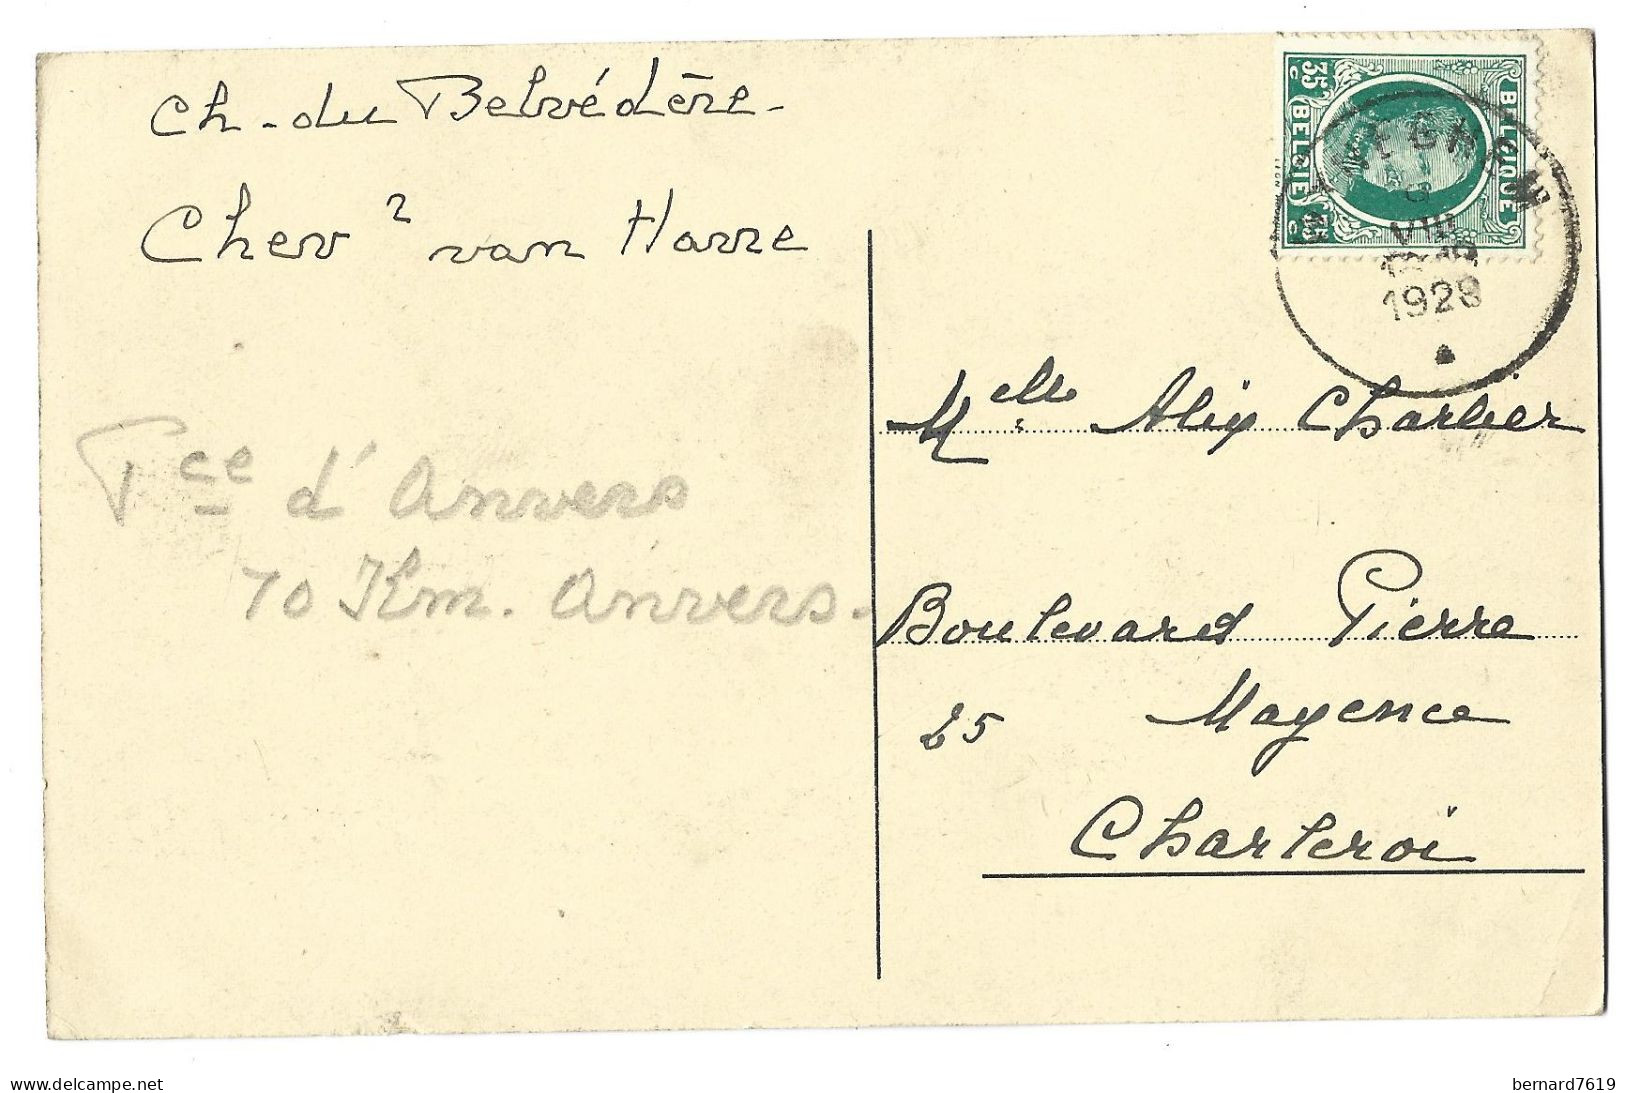 Ch. du Belvédère.
Chev² van Havre
Pce d'Anvers
70 Km. Anvers.
35 BELGIQUE
C BELGIË 35 C
VIII
1928
Melle Alix Charlier
Boulevard Pierre
25 Mayence
Charleroi
www.delcampe.net
bernard7619